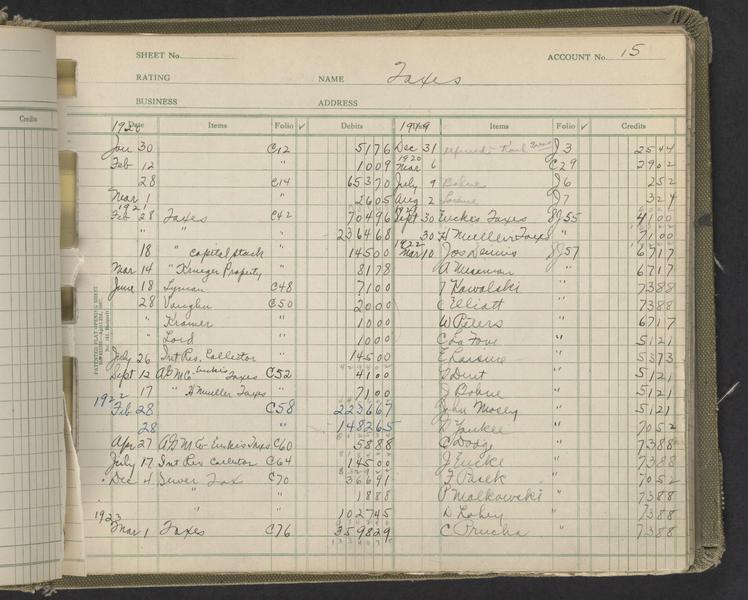 SHEET No.
ACCOUNT No. 15
RATING
NAME Taxes
BUSINESS
ADDRESS
Credits
Date Items Folio ✓ Debits Date Items Folio ✓ Credits
1920 1919
Jan 30 C12 5176 Dec 31 J3 2544
1920
Feb 12 " 1009 Mar 6 C29 2902
28 C14 65370 July 9 Bohne J6 252
Mar 1 " 2605 Aug 2 Larsine J7 324
1921
Feb 28 Taxes C42 70496 Sept 30 Euckes Taxes J55 4100
" " " " 236468 30 H Mueller Taxes " 7100
1922
18 " capital stock " 14500 Mar 10 Jos Dennis J57 6717
Mar 14 " Krueger Property " 8178 A Meseman " 6717
June 18 Lyman C48 7100 T Kowalski " 7388
28 Vaughn C50 2000 C Elliott " 7388
" Kramer " 1000 W Peters " 6717
" Lord " 1000 C La Fove " 5121
July 26 Int Rev. Collector " 14500 E Larsine " 5373
Sept 12 C52 4100 " 5121
17 " H Mueller Taxes " 7100 J Bohne " 5121
1922
Feb 28 C58 223667 John Mosey " 5121
28 " 148265 Yankee " 7052
Apr 27 C60 5888 C Dodge " 7388
July 17 Int Rev Collector C64 14500 J Eucke " 7388
Dec 4 Sewer Tax C70 36691 F Pasek " 7052
" " 1888 P Malkowski " 7388
" " 102745 D Lahey " 7388
1923
Mar 1 Taxes C76 359829 C Prucha " 7388